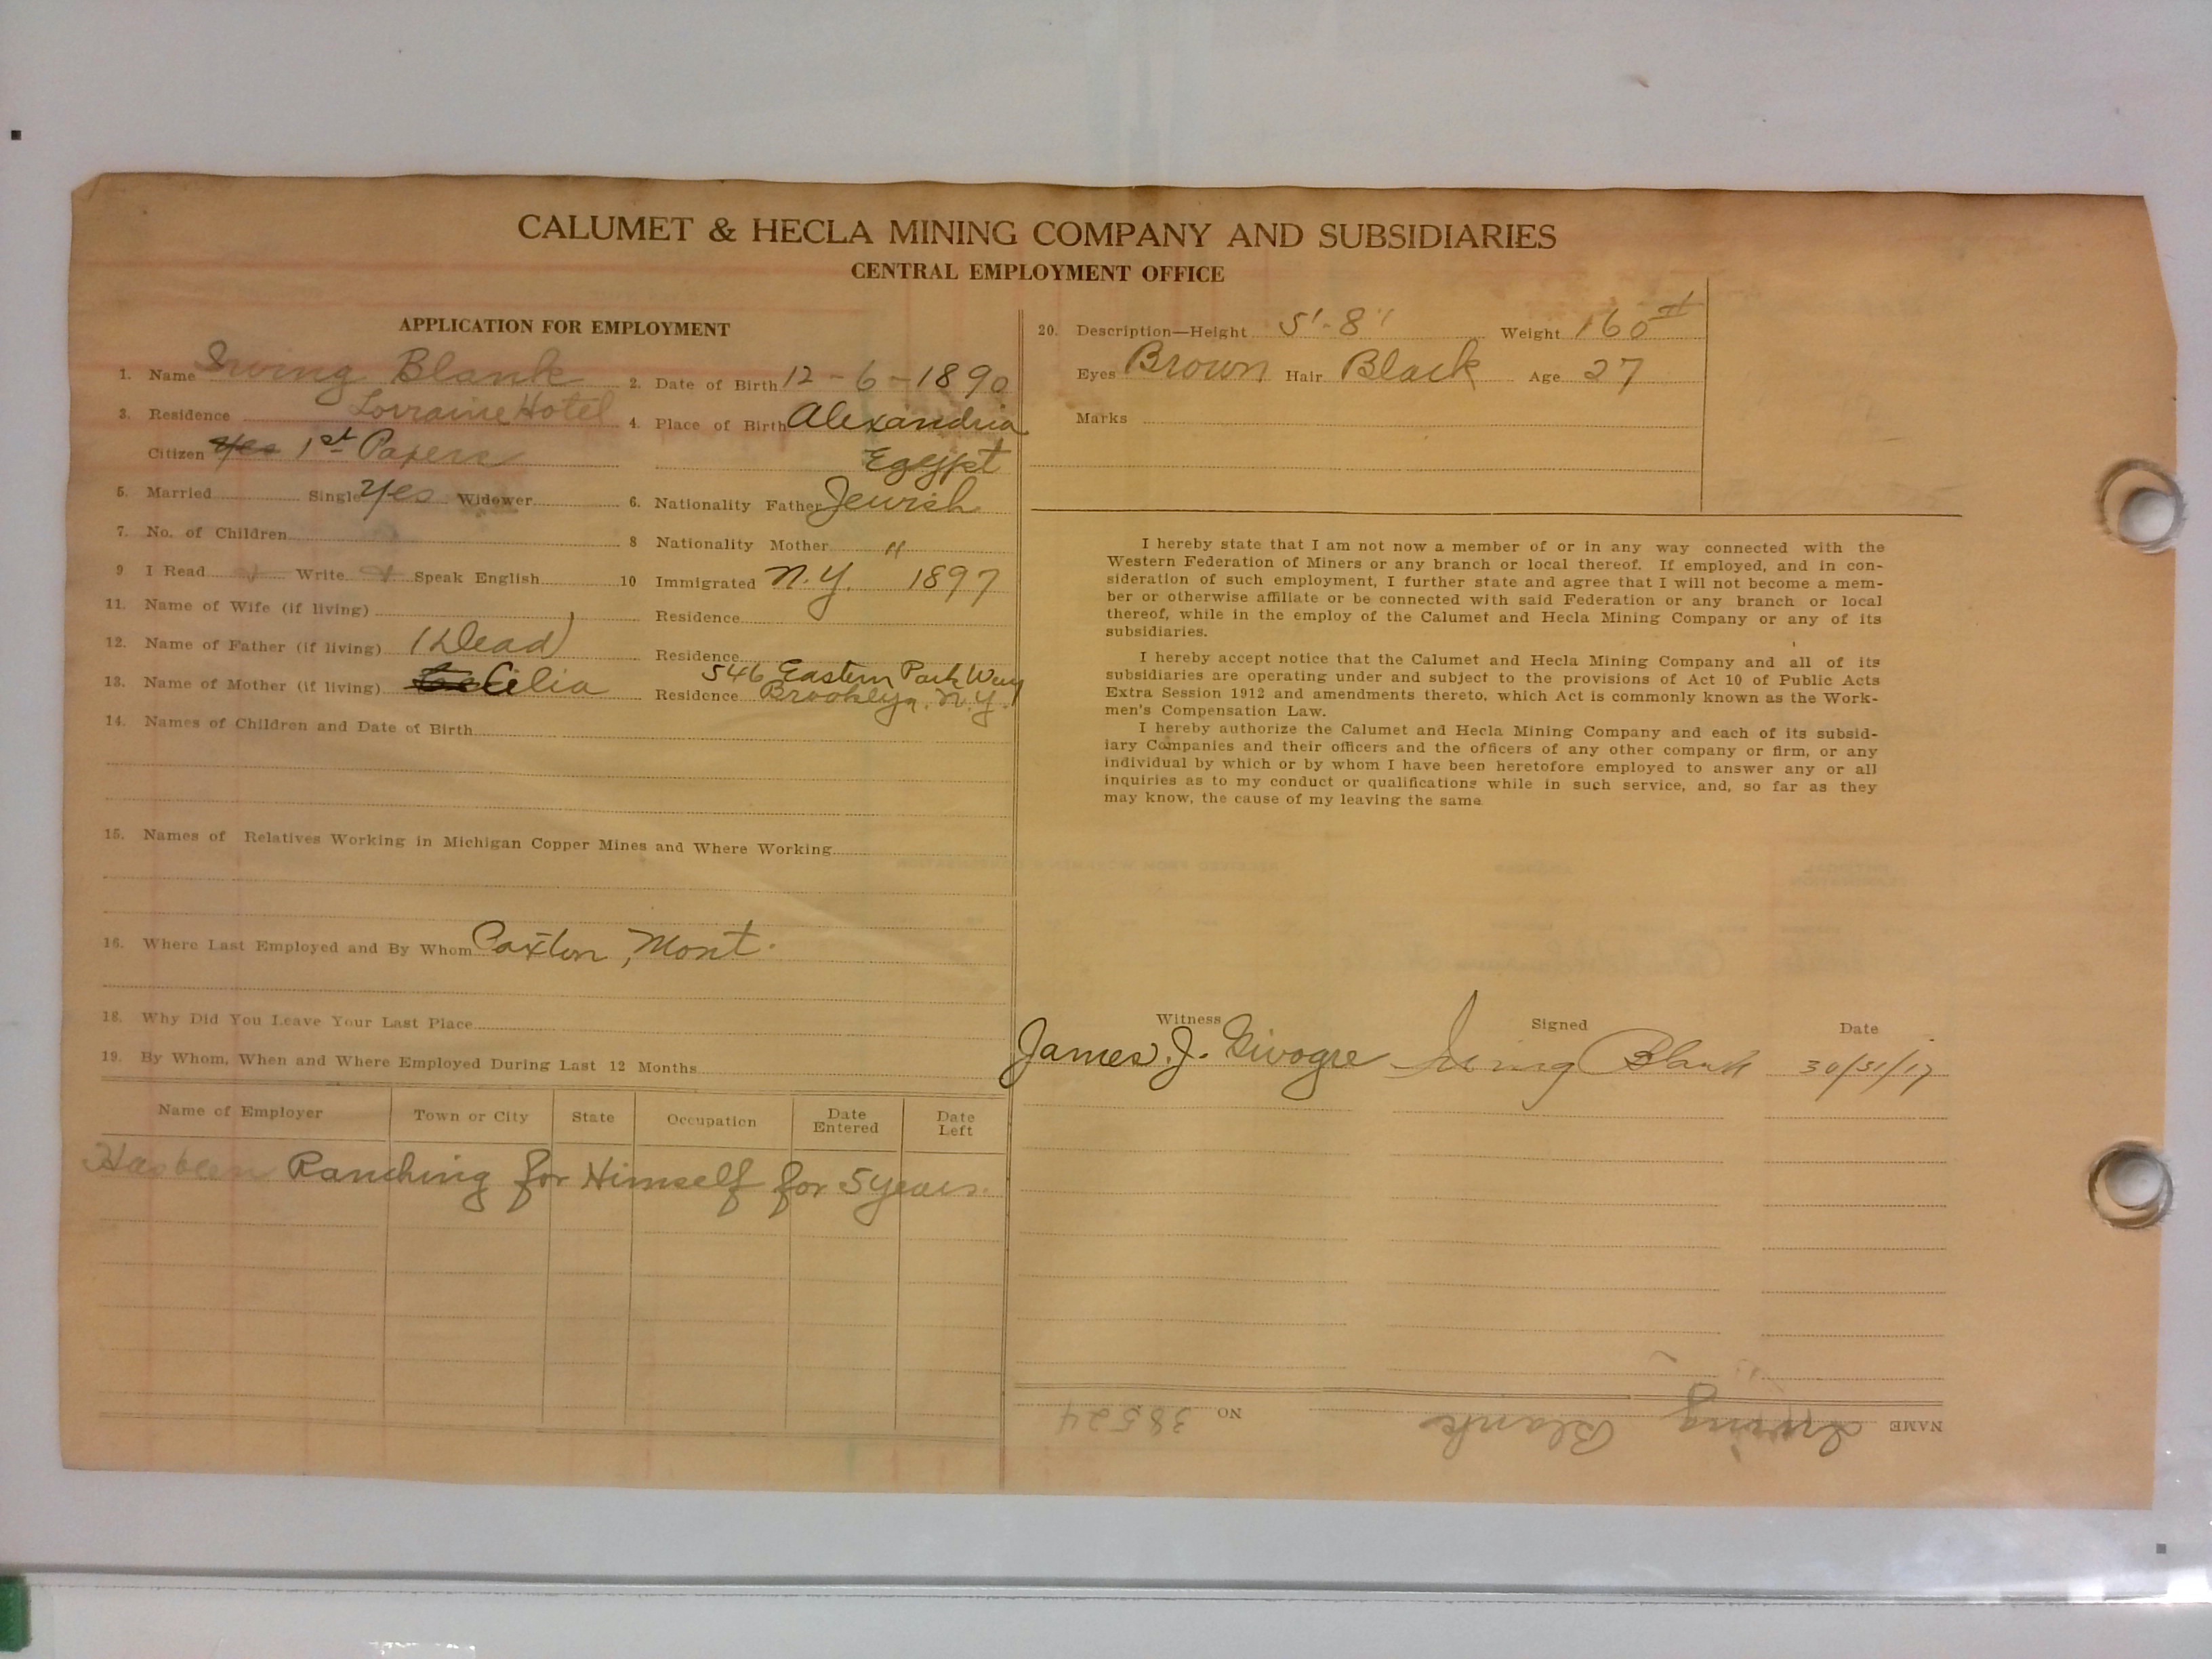 CALUMET & HECLA MINING COMPANY AND SUBSIDIARIES
CENTRAL EMPLOYMENT OFFICE
APPLICATION FOR EMPLOYMENT
1. Name Irving Blank 2. Date of Birth 12-6-1890
3. Residence Lorraine Hotel 4. Place of Birth Alexandria
Citizen Yes 1st Papers Egypt
5. Married Single Yes Widower 6. Nationality Father Jewish
7. No. of Children 8 Nationality Mother "
9 I Read Write Speak English 10 Immigrated N.Y. 1897
11. Name of Wife (if living) Residence
12. Name of Father (if living) (Dead) Residence
546 Eastern Park Way
13. Name of Mother (if living) Cilia Residence Brooklyn, N.Y.
14. Names of Children and Date of Birth
15. Names of Relatives Working in Michigan Copper Mines and Where Working
16. Where Last Employed and By Whom Paxton, Mont.
18. Why Did You Leave Your Last Place
19. By Whom, When and Where Employed During Last 12 Months
Name of Employer Town or City State Occupation Date Entered Date Left
Has been Ranching for Himself for 5 years.
20. Description—Height 5'-8" Weight 160 #
Eyes Brown Hair Black Age 27
Marks
I hereby state that I am not now a member of or in any way connected with the
Western Federation of Miners or any branch or local thereof. If employed, and in con-
sideration of such employment, I further state and agree that I will not become a mem-
ber or otherwise affiliate or be connected with said Federation or any branch or local
thereof, while in the employ of the Calumet and Hecla Mining Company or any of its
subsidiaries.
I hereby accept notice that the Calumet and Hecla Mining Company and all of its
subsidiaries are operating under and subject to the provisions of Act 10 of Public Acts
Extra Session 1912 and amendments thereto, which Act is commonly known as the Work-
men's Compensation Law.
I hereby authorize the Calumet and Hecla Mining Company and each of its subsid-
iary Companies and their officers and the officers of any other company or firm, or any
individual by which or by whom I have been heretofore employed to answer any or all
inquiries as to my conduct or qualifications while in such service, and, so far as they
may know, the cause of my leaving the same
Witness Signed Date
James J. Irving Blank
NAME Irving Blank NO 38524